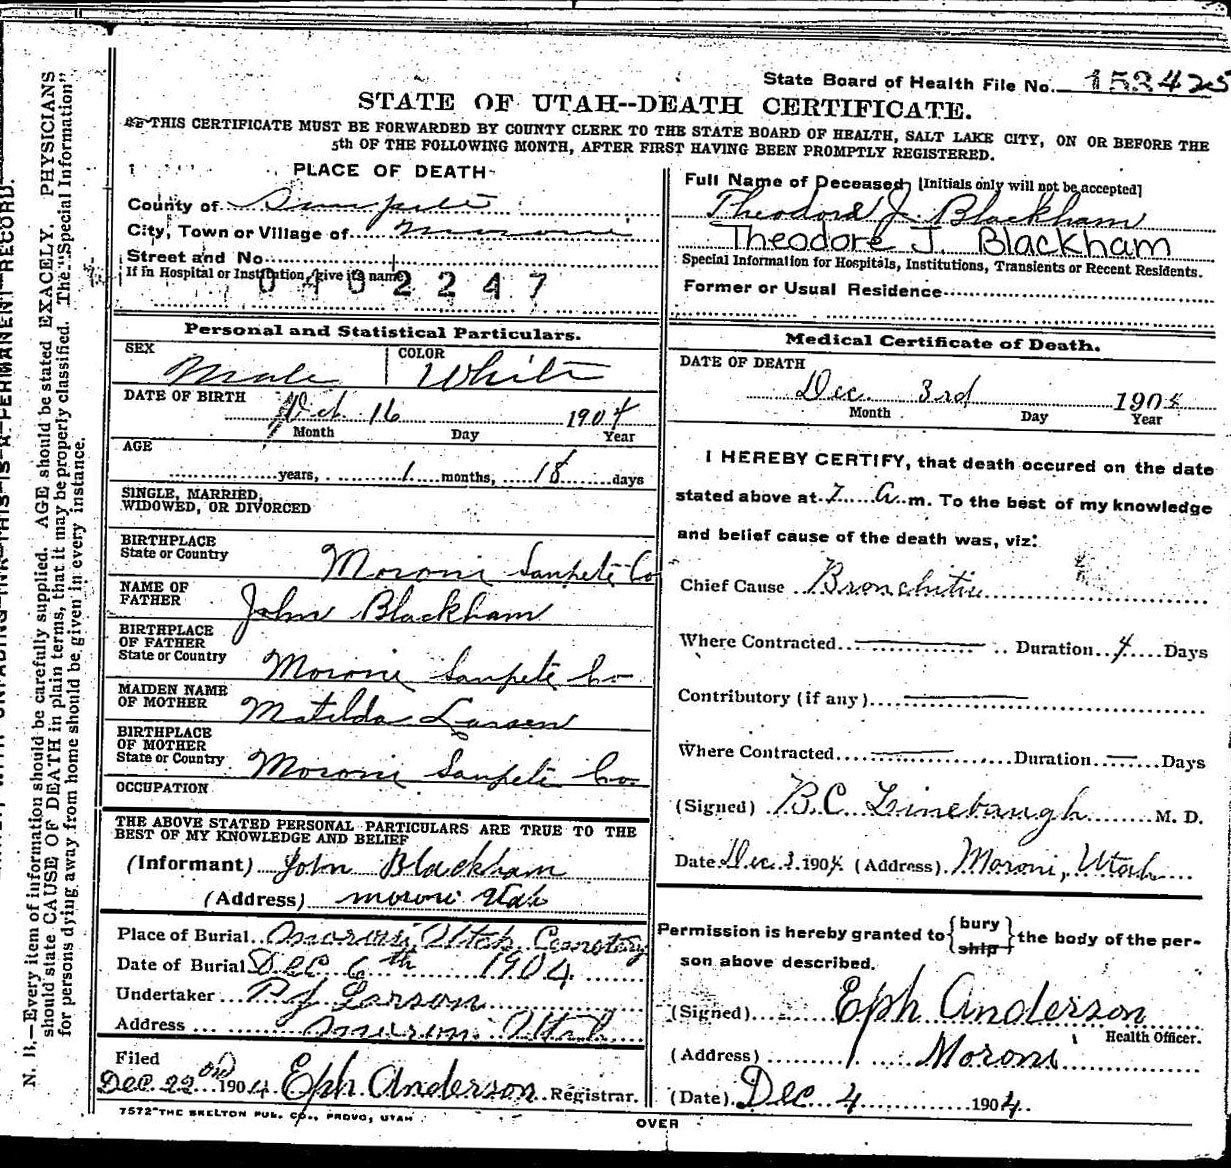 State Board of Health File No. 153425
STATE OF UTAH--DEATH CERTIFICATE.
THIS CERTIFICATE MUST BE FORWARDED BY COUNTY CLERK TO THE STATE BOARD OF HEALTH, SALT LAKE CITY, ON OR BEFORE THE
5th OF THE FOLLOWING MONTH, AFTER FIRST HAVING BEEN PROMPTLY REGISTERED.
PLACE OF DEATH
County of Sanpete
City, Town or Village of Moroni
Street and No.
If in Hospital or Institution, give its name
0402247
Full Name of Deceased, [Initials only will not be accepted]
Theodore J. Blackham
Theodore J. Blackham
Special Information for Hospitals, Institutions, Transients or Recent Residents.
Former or Usual Residence
Personal and Statistical Particulars.
SEX Male COLOR White
DATE OF BIRTH
Oct. 16 1904
Month Day Year
AGE
years, 1 months, 18 days
SINGLE, MARRIED,
WIDOWED, OR DIVORCED
BIRTHPLACE
State or Country Moroni Sanpete Co
NAME OF
FATHER John Blackham
BIRTHPLACE
OF FATHER
State or Country Moroni Sanpete Co
MAIDEN NAME
OF MOTHER Matilda Larsen
BIRTHPLACE
OF MOTHER
State or Country Moroni Sanpete Co
OCCUPATION
THE ABOVE STATED PERSONAL PARTICULARS ARE TRUE TO THE
BEST OF MY KNOWLEDGE AND BELIEF
(Informant) John Blackham
(Address) Moroni Utah
Place of Burial Moroni, Utah Cemetery
Date of Burial Dec 6th 1904
Undertaker P J Larson
Address Moroni Utah
Filed
Dec. 22nd 1904 Eph Anderson Registrar.
7572 THE SKELTON PUB. CO., PROVO, UTAH
Medical Certificate of Death.
DATE OF DEATH
Dec. 3rd 1904
Month Day Year
I HEREBY CERTIFY, that death occured on the date
stated above at 7 A. m. To the best of my knowledge
and belief cause of the death was, viz:
Chief Cause Bronchitis
Where Contracted Duration 4 Days
Contributory (if any)
Where Contracted Duration Days
(Signed) B.C. Linebaugh M. D.
Date Dec 3. 1904 (Address) Moroni, Utah
Permission is hereby granted to {bury
ship} the body of the per-
son above described.
(Signed) Eph Anderson
Health Officer.
(Address) Moroni
(Date) Dec 4 1904
OVER
N. B.—Every item of information should be carefully supplied. AGE should be stated EXACELY. PHYSICIANS
should state CAUSE OF DEATH in plain terms, that it may be properly classified. The "Special Information"
for persons dying away from home should be given in every instance.